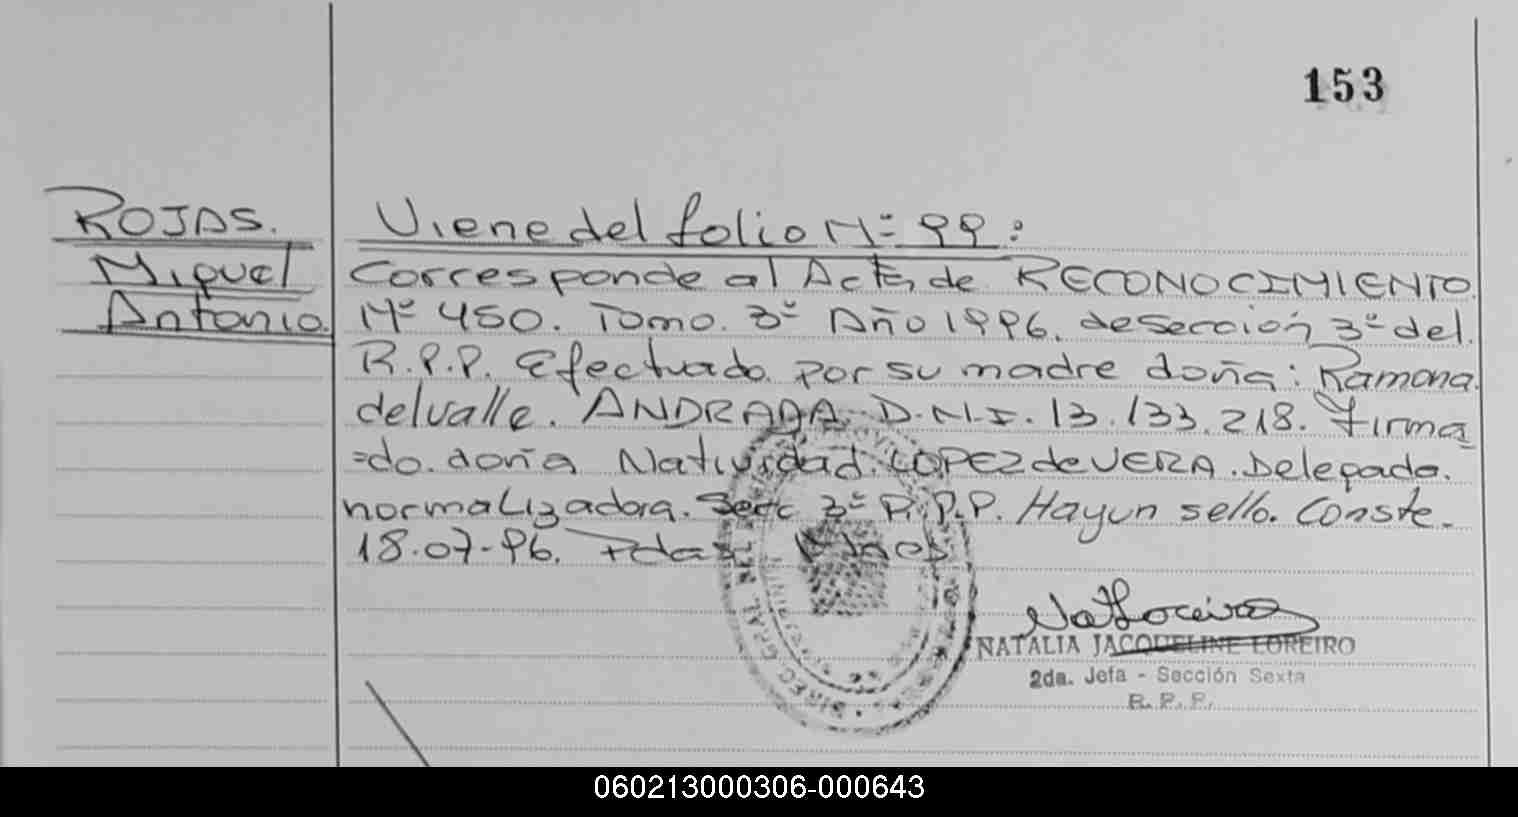 153
ROJAS.
Miguel
Antonio.
Viene del folio Nº 99:
Corresponde al Acta de RECONOCIMIENTO.
Nº 450. Tomo. 3º Año 1996. de sección 3º del.
R.P.P. Efectuado por su madre doña: Ramona.
del valle. ANDRADA D.N.I. 13.133.218. Firma
=do. doña Natividad. LOPEZ de VERA. Delegada.
normalizadora. Secc 3º R.P.P. Hay un sello. Conste.
18.07-96.
NATALIA JACQUELINE LOREIRO
2da. Jefa - Sección Sexta
R. P. P.
060213000306-000643